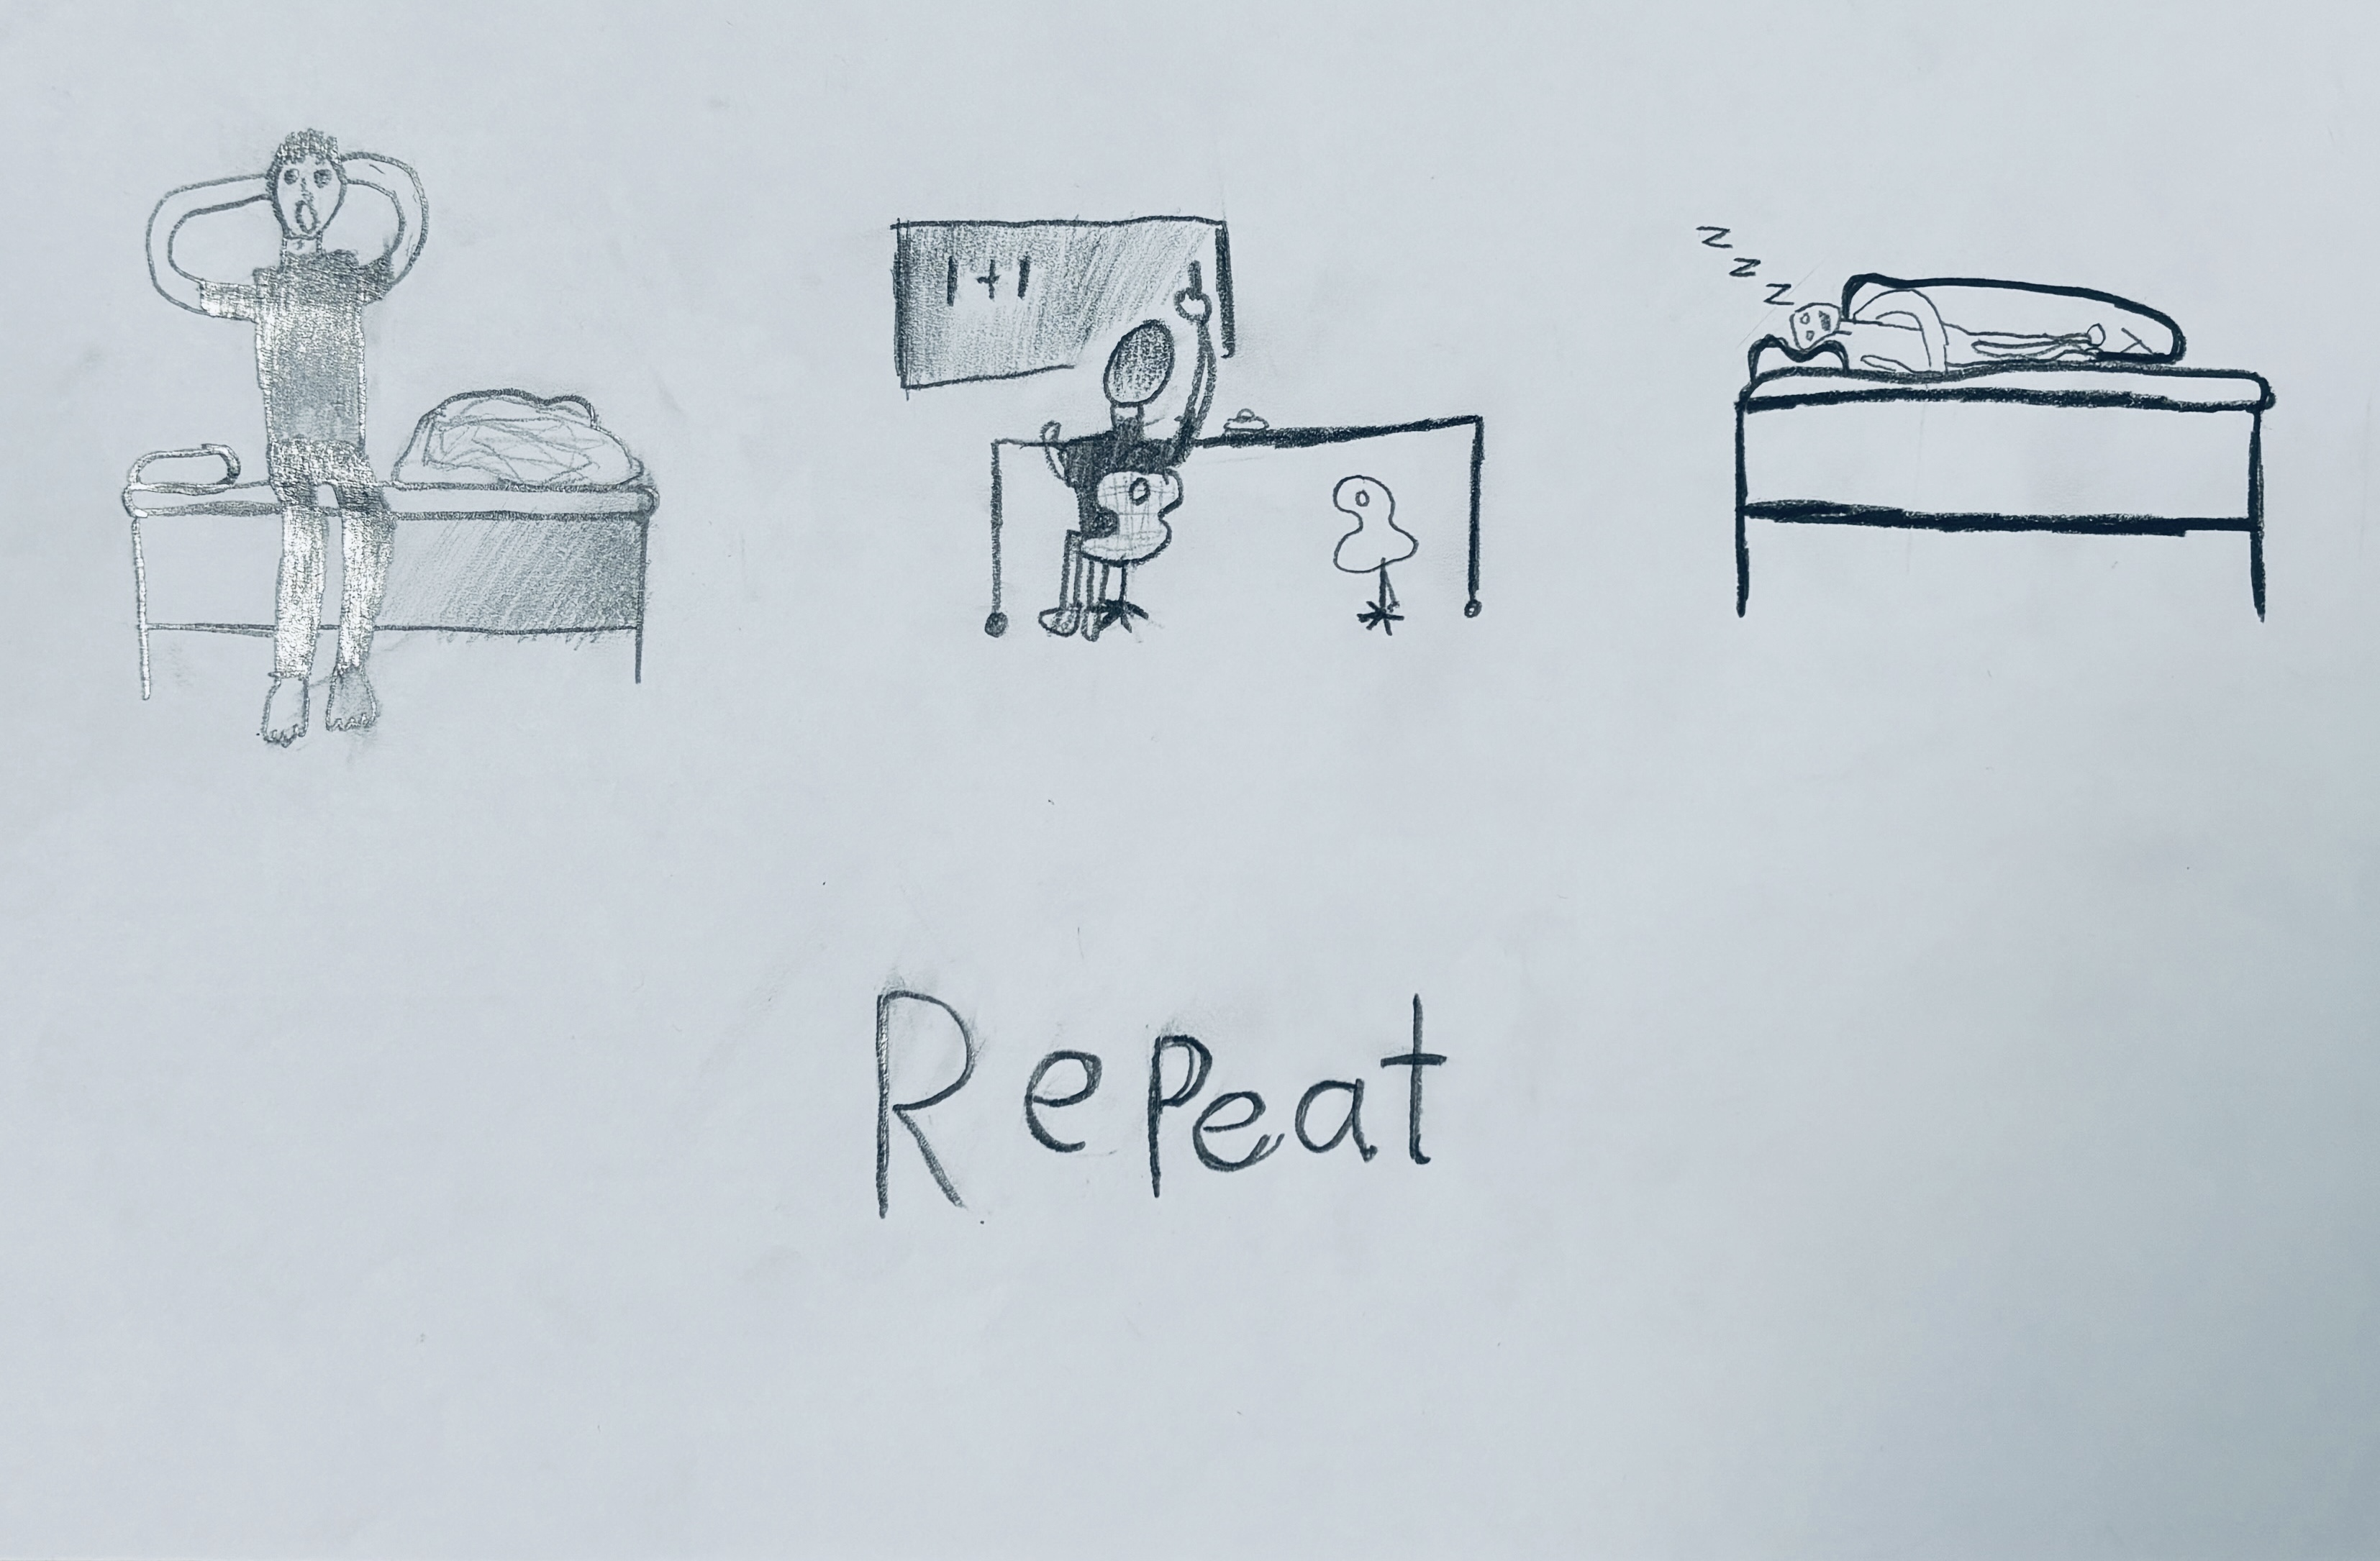 1+1
z
z
z
Repeat